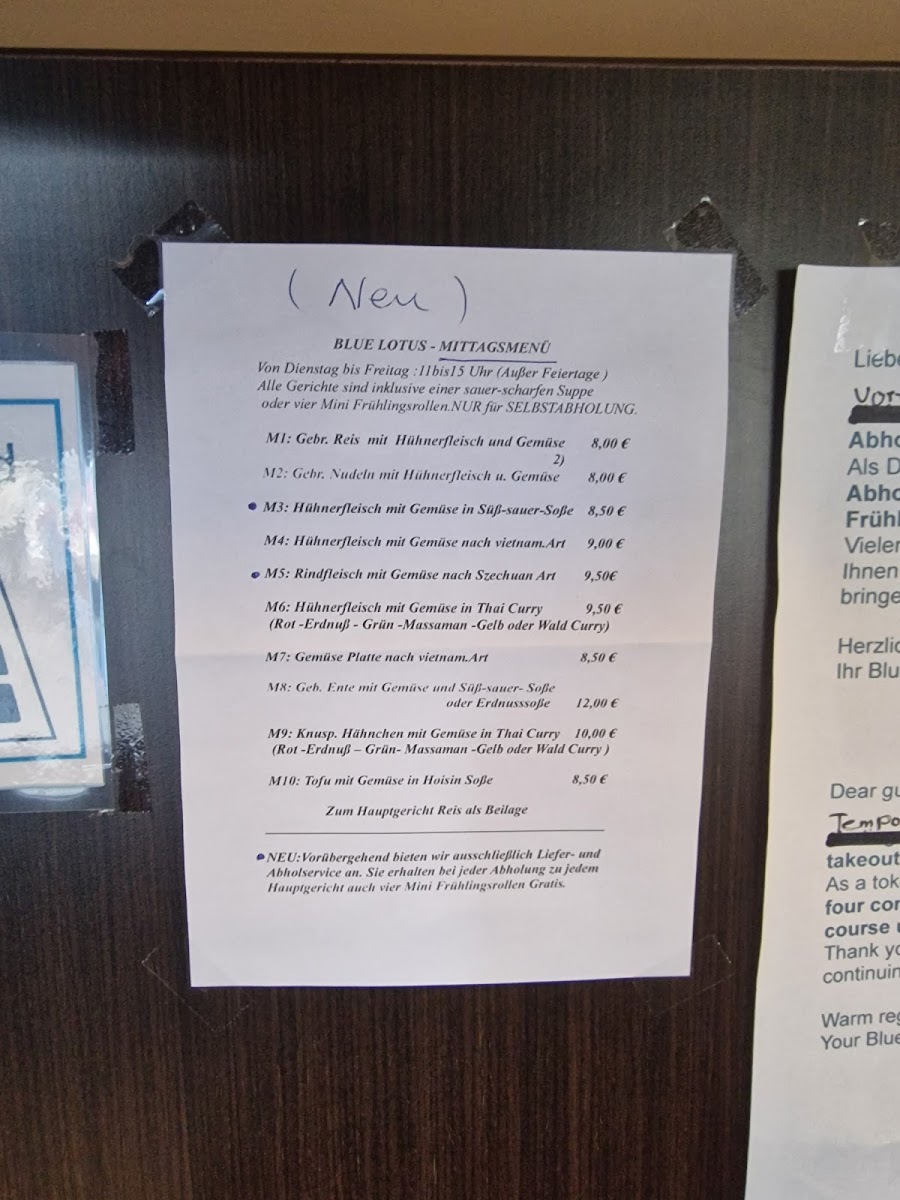 ( Neu )
BLUE LOTUS - MITTAGSMENÜ
Von Dienstag bis Freitag :11bis15 Uhr (Außer Feiertage )
Alle Gerichte sind inklusive einer sauer-scharfen Suppe
oder vier Mini Frühlingsrollen.NUR für SELBSTABHOLUNG.
M1: Gebr. Reis mit Hühnerfleisch und Gemüse 8,00 €
2)
M2: Gebr. Nudeln mit Hühnerfleisch u. Gemüse 8,00 €
• M3: Hühnerfleisch mit Gemüse in Süß-sauer-Soße 8,50 €
M4: Hühnerfleisch mit Gemüse nach vietnam.Art 9,00 €
• M5: Rindfleisch mit Gemüse nach Szechuan Art 9,50€
M6: Hühnerfleisch mit Gemüse in Thai Curry 9,50 €
(Rot -Erdnuß - Grün -Massaman -Gelb oder Wald Curry)
M7: Gemüse Platte nach vietnam.Art 8,50 €
M8: Geb. Ente mit Gemüse und Süß-sauer- Soße
oder Erdnusssoße 12,00 €
M9: Knusp. Hähnchen mit Gemüse in Thai Curry 10,00 €
(Rot -Erdnuß – Grün- Massaman -Gelb oder Wald Curry )
M10: Tofu mit Gemüse in Hoisin Soße 8,50 €
Zum Hauptgericht Reis als Beilage
• NEU:Vorübergehend bieten wir ausschließlich Liefer- und
Abholservice an. Sie erhalten bei jeder Abholung zu jedem
Hauptgericht auch vier Mini Frühlingsrollen Gratis.
Liebe
Vor
Abho
Als D
Abho
Frühl
Vieler
Ihnen
bringe
Herzlic
Ihr Blu
Dear gu
Tempo
takeout
As a tok
four cor
course u
Thank yo
continuin
Warm reg
Your Blue